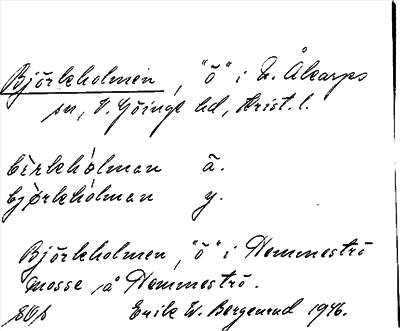 Björkholmen, "ö" i N. Åkarps
sn, V. Göinge hd, Krist. l.
bèrkhólman ä.
bjørkhólman y.
Björkholmen, "ö" i Hemmeströ
mosse på Hemmeströ.
Erik W. Bergenrud 1946.